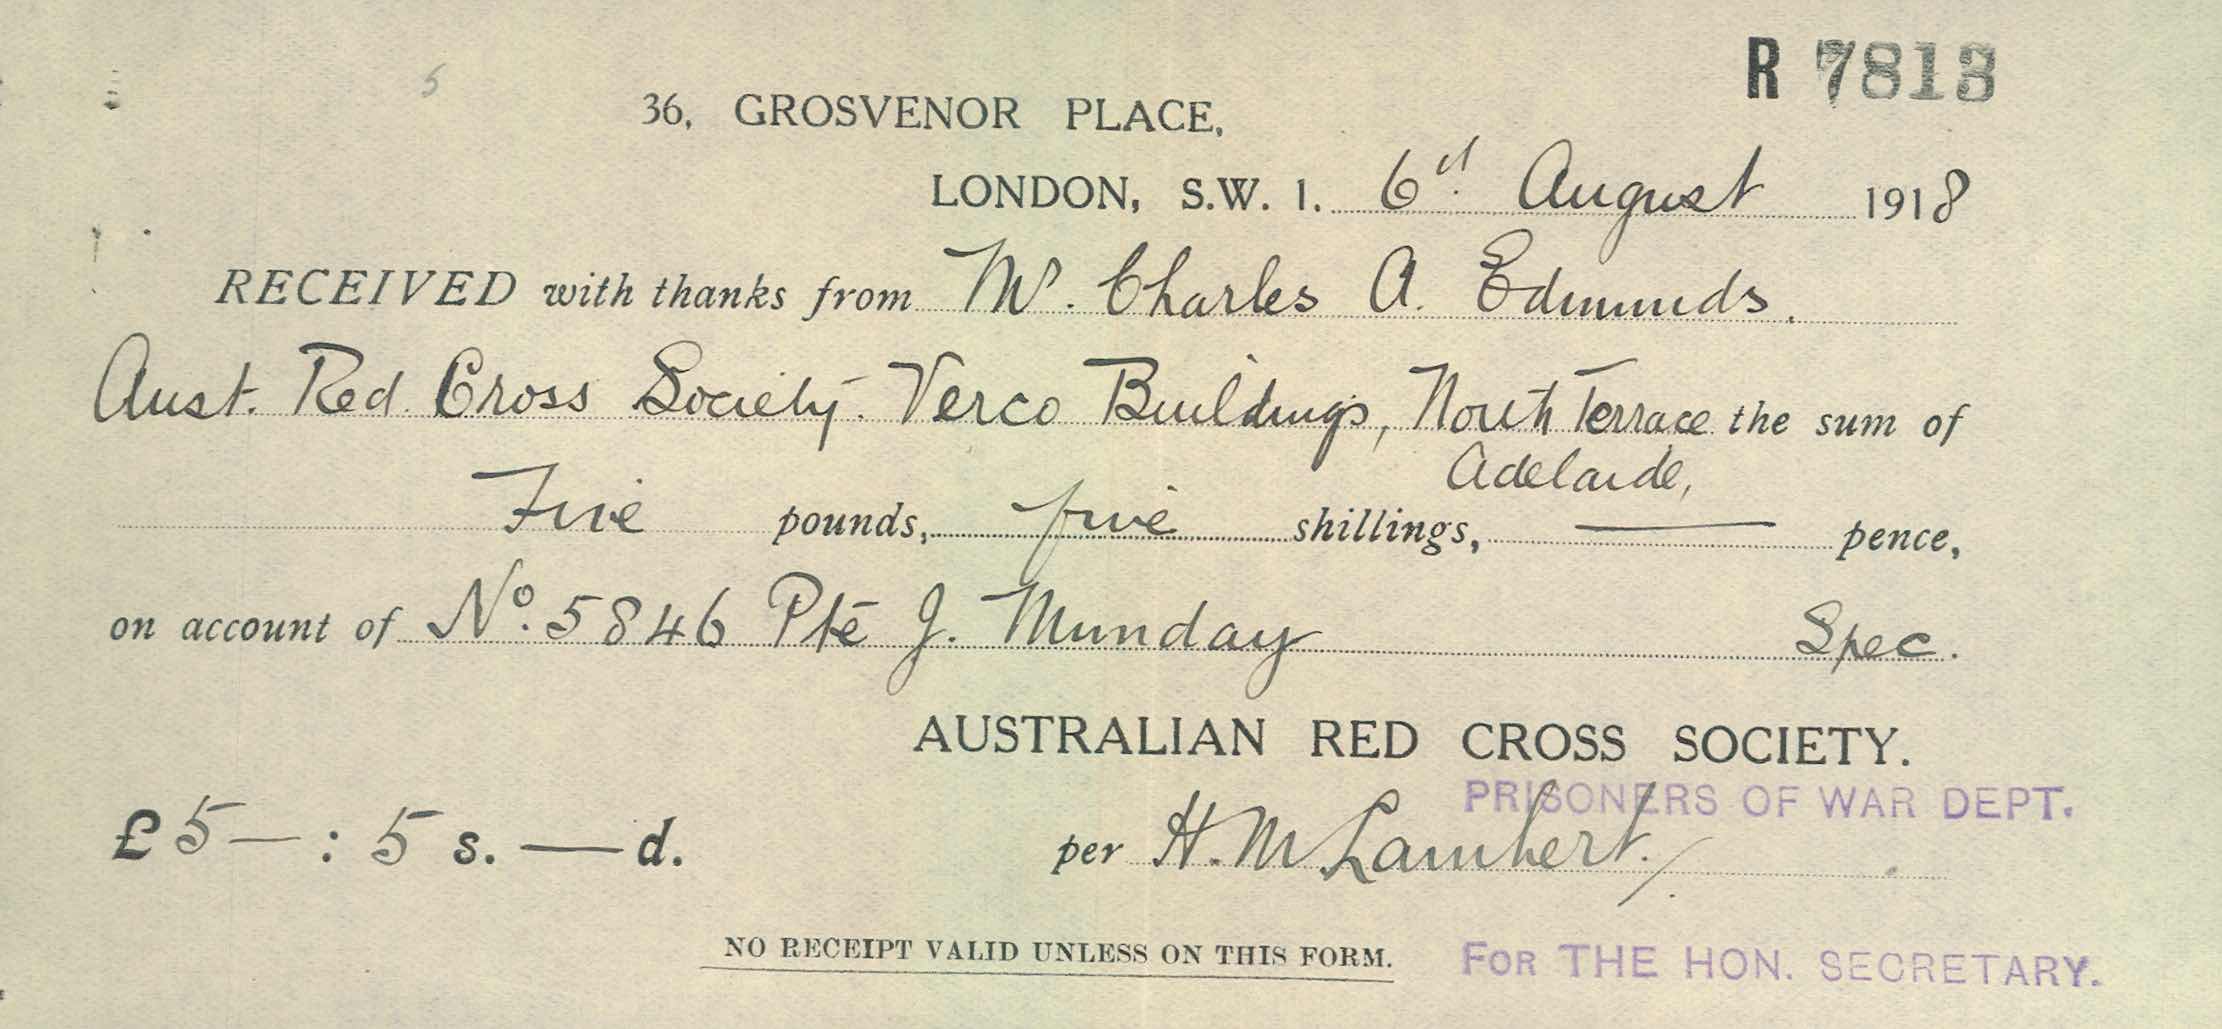 R 7813
5
36, GROSVENOR PLACE,
LONDON, S.W. 1. 6th August 1918
RECEIVED with thanks from Mr. Charles A. Edmunds.
Aust. Red Cross Society. Verco Buildings, North Terrace the sum of
Adelaide,
Five pounds, five shillings, — pence,
on account of No. 5846 Pte J. Munday Spec.
AUSTRALIAN RED CROSS SOCIETY.
PRISONERS OF WAR DEPT.
£ 5 — : 5 s. — d. per H. M. Lambert.
NO RECEIPT VALID UNLESS ON THIS FORM. FOR THE HON. SECRETARY.